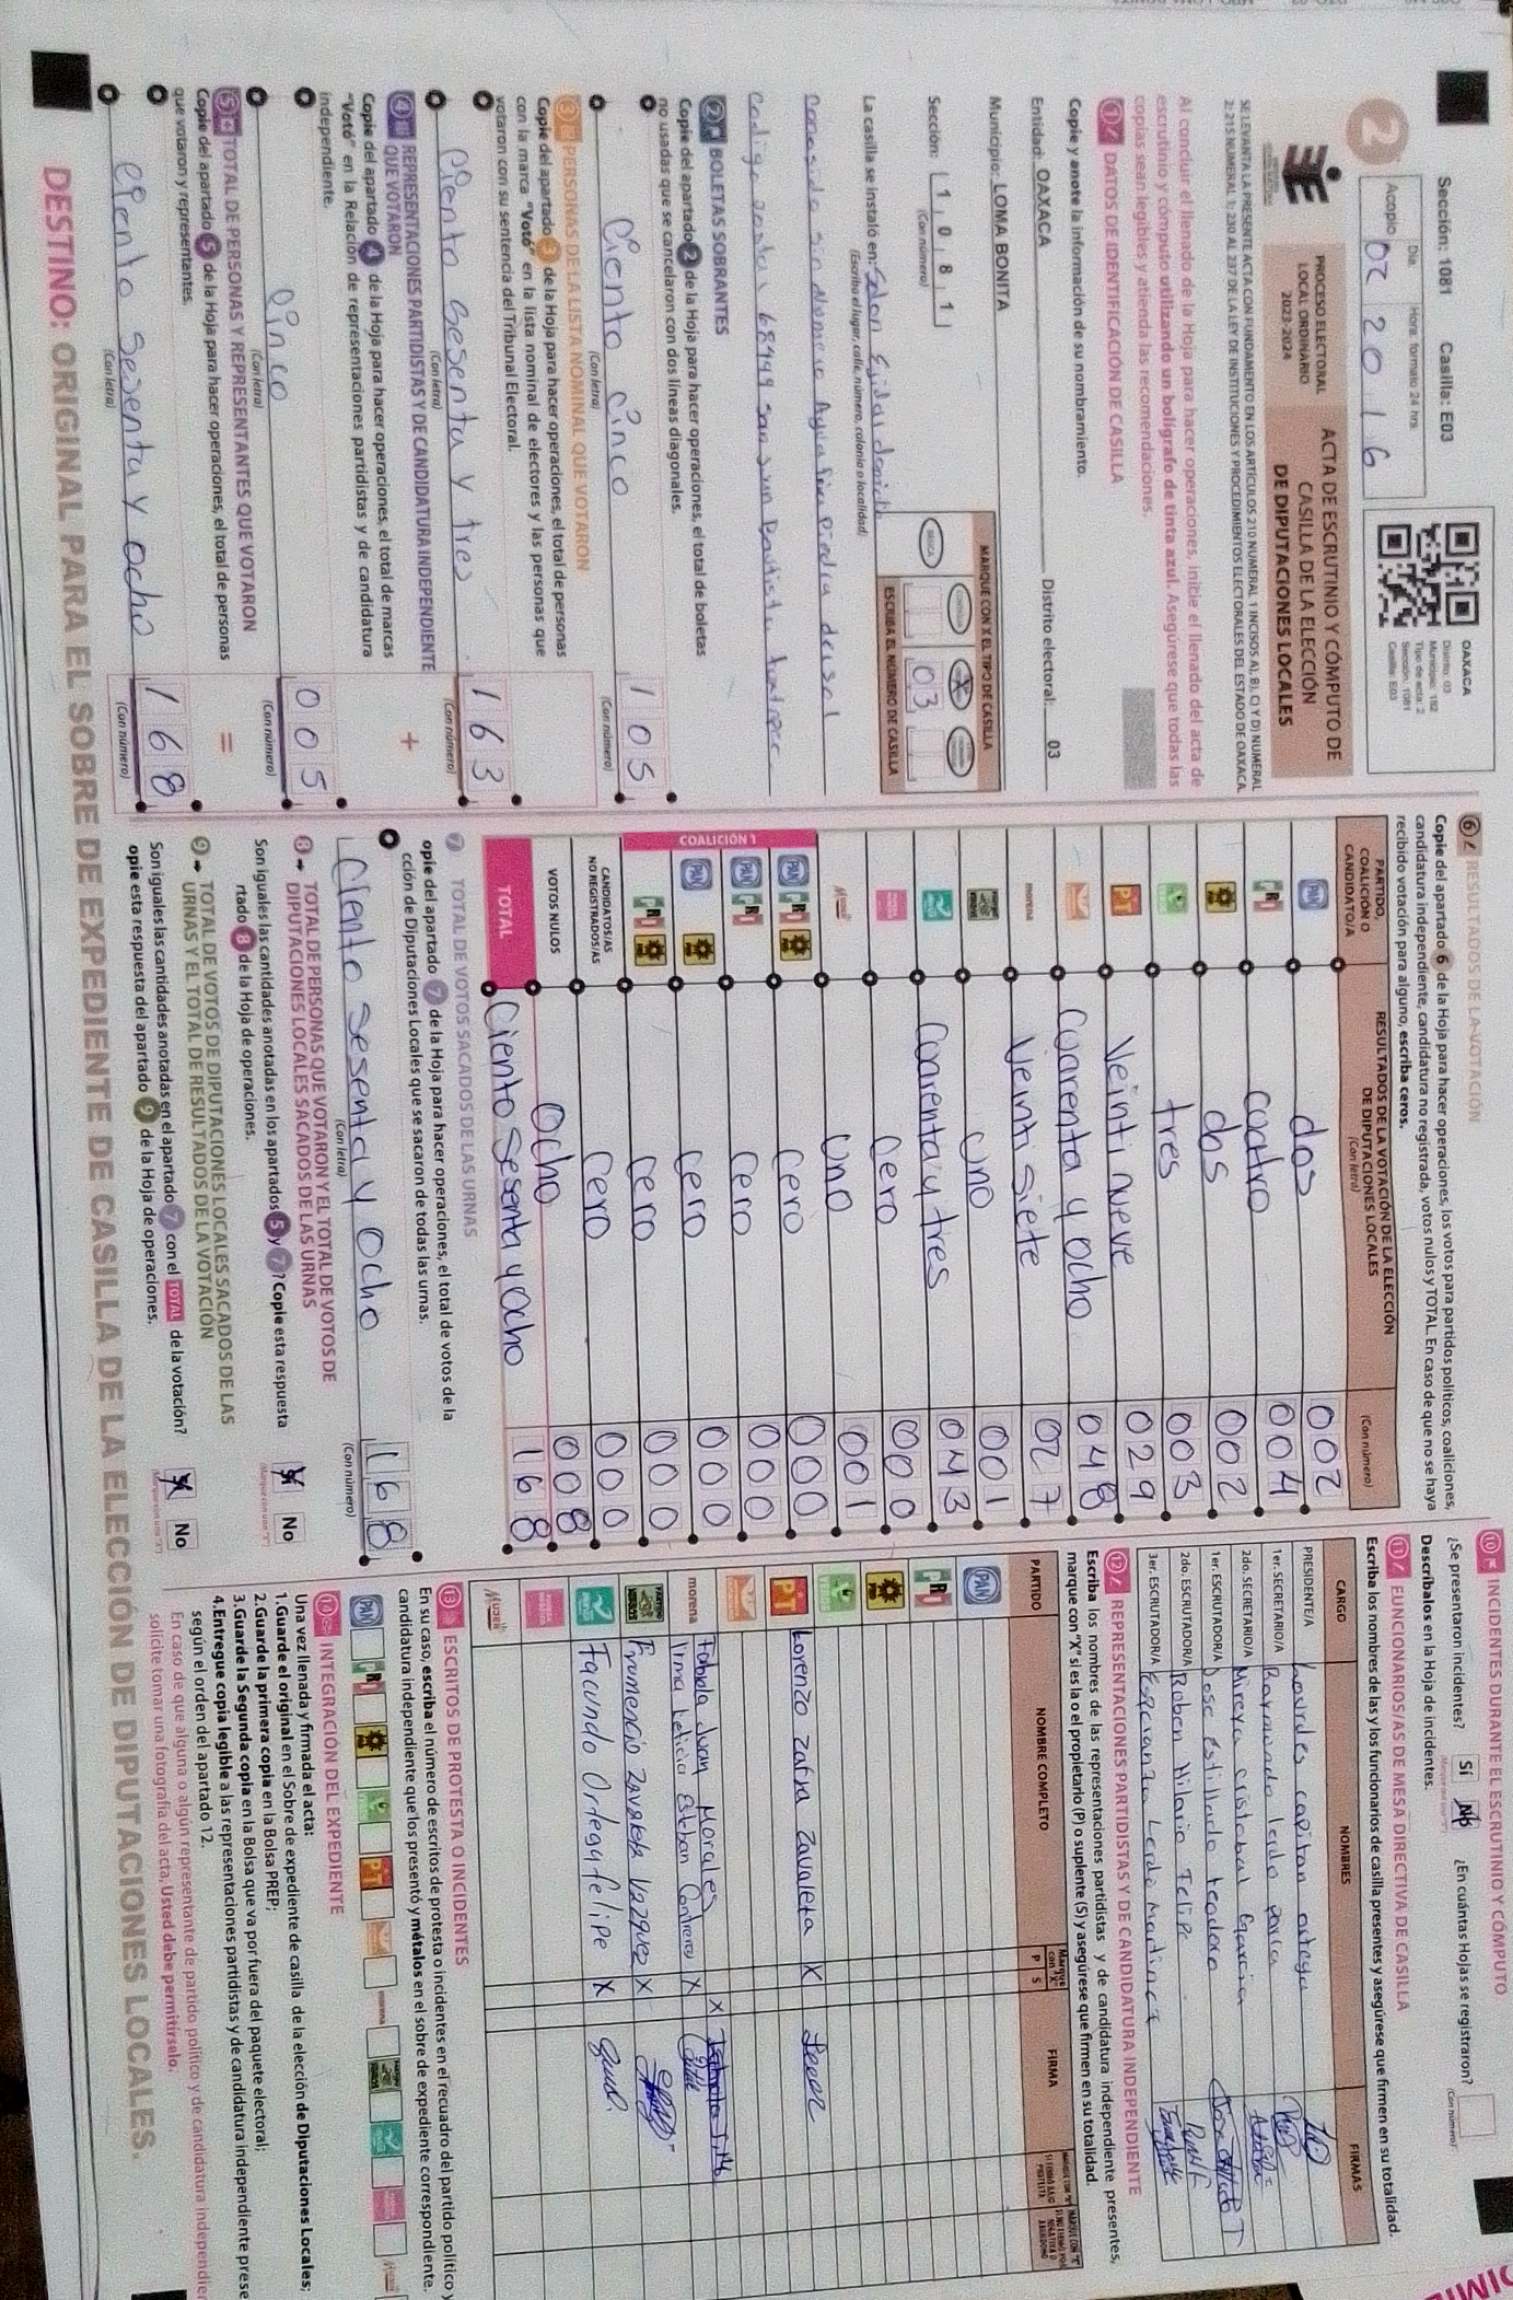 Sección: 1081 Casilla: E03
Día: Hora: formato 24 hrs.
Acopio 02 20 16
OAXACA
Distrito: 03
Municipio: 192
Tipo de acta: 2
Sección: 1081
Casilla: E03
2
PROCESO ELECTORAL
LOCAL ORDINARIO
2023-2024
ACTA DE ESCRUTINIO Y CÓMPUTO DE
CASILLA DE LA ELECCIÓN
DE DIPUTACIONES LOCALES
SE LEVANTA LA PRESENTE ACTA CON FUNDAMENTO EN LOS ARTÍCULOS 210 NUMERAL 1 INCISOS A), B), C) Y D) NUMERAL
2; 215 NUMERAL 1; 230 AL 237 DE LA LEY DE INSTITUCIONES Y PROCEDIMIENTOS ELECTORALES DEL ESTADO DE OAXACA.
Al concluir el llenado de la Hoja para hacer operaciones, inicie el llenado del acta de
escrutinio y cómputo utilizando un bolígrafo de tinta azul. Asegúrese que todas las
copias sean legibles y atienda las recomendaciones.
1 DATOS DE IDENTIFICACIÓN DE CASILLA
Copie y anote la información de su nombramiento.
Entidad: OAXACA Distrito electoral: 03
Municipio: LOMA BONITA
Sección: 1 0 8 1
(Con número)
MARQUE CON X EL TIPO DE CASILLA
X
03
ESCRIBA EL NÚMERO DE CASILLA
La casilla se instaló en: Salon Ejidal
(Escriba el lugar, calle, número, colonia o localidad)
conosido sin Numero
codigo postal 68444 san Juan Bautista
2 BOLETAS SOBRANTES
Copie del apartado 2 de la Hoja para hacer operaciones, el total de boletas
no usadas que se cancelaron con dos líneas diagonales.
Ciento cinco 105
(Con letra) (Con número)
3 PERSONAS DE LA LISTA NOMINAL QUE VOTARON
Copie del apartado 3 de la Hoja para hacer operaciones, el total de personas
con la marca "Votó" en la lista nominal de electores y las personas que
votaron con su sentencia del Tribunal Electoral.
Ciento sesenta y tres 163
(Con letra) (Con número)
4 REPRESENTACIONES PARTIDISTAS Y DE CANDIDATURA INDEPENDIENTE
QUE VOTARON +
Copie del apartado 4 de la Hoja para hacer operaciones, el total de marcas
"Votó" en la Relación de representaciones partidistas y de candidatura
independiente.
Cinco 005
(Con letra) (Con número)
5 TOTAL DE PERSONAS Y REPRESENTANTES QUE VOTARON
Copie del apartado 5 de la Hoja para hacer operaciones, el total de personas
que votaron y representantes. =
Ciento sesenta y ocho 168
(Con letra) (Con número)
6 RESULTADOS DE LA VOTACIÓN
Copie del apartado 6 de la Hoja para hacer operaciones, los votos para partidos políticos, coaliciones,
candidatura independiente, candidatura no registrada, votos nulos y TOTAL. En caso de que no se haya
recibido votación para alguno, escriba ceros.
PARTIDO,
COALICIÓN O
CANDIDATO/A
RESULTADOS DE LA VOTACIÓN DE LA ELECCIÓN
DE DIPUTACIONES LOCALES
(Con letra) (Con número)
PAN dos 002
PRI cuatro 004
PRD dos 002
tres 003
PT Veinti nueve 029
Cuarenta y ocho 048
morena Veinti siete 027
uno 001
Cuarenta y tres 043
cero 000
Mujer uno 001
COALICIÓN 1
PAN PRI PRD cero 000
PAN PRI cero 000
PAN PRD cero 000
PRI PRD cero 000
CANDIDATOS/AS
NO REGISTRADOS/AS cero 000
VOTOS NULOS ocho 008
TOTAL Ciento sesenta y ocho 168
7 TOTAL DE VOTOS SACADOS DE LAS URNAS
opie del apartado 7 de la Hoja para hacer operaciones, el total de votos de la
cción de Diputaciones Locales que se sacaron de todas las urnas.
Ciento sesenta y ocho 168
(Con letra) (Con número)
8 TOTAL DE PERSONAS QUE VOTARON Y EL TOTAL DE VOTOS DE
DIPUTACIONES LOCALES SACADOS DE LAS URNAS
Son iguales las cantidades anotadas en los apartados 5 y 7? Copie esta respuesta
rtado 8 de la Hoja de operaciones.
Sí No
9 TOTAL DE VOTOS DE DIPUTACIONES LOCALES SACADOS DE LAS
URNAS Y EL TOTAL DE RESULTADOS DE LA VOTACIÓN
Son iguales las cantidades anotadas en el apartado 7 con el TOTAL de la votación?
opie esta respuesta del apartado 9 de la Hoja de operaciones.
Sí No
10 INCIDENTES DURANTE EL ESCRUTINIO Y CÓMPUTO
¿Se presentaron incidentes? Sí No ¿En cuántas Hojas se registraron?
(Con número)
Descríbalos en la Hoja de incidentes.
11 FUNCIONARIOS/AS DE MESA DIRECTIVA DE CASILLA
Escriba los nombres de las y los funcionarios de casilla presentes y asegúrese que firmen en su totalidad.
CARGO NOMBRES FIRMAS
PRESIDENTE/A Lourdes capitan ortega
1er. SECRETARIO/A Raymundo
2do. SECRETARIO/A Mireya cristobal Garcia
1er. ESCRUTADOR/A Jose Estillado teodoro
2do. ESCRUTADOR/A Ruben Hilario Felipe
3er. ESCRUTADOR/A Esperanza Lerdo Martinez
12 REPRESENTACIONES PARTIDISTAS Y DE CANDIDATURA INDEPENDIENTE
Escriba los nombres de las representaciones partidistas y de candidatura independiente presentes,
marque con "X" si es la o el propietario (P) o suplente (S) y asegúrese que firmen en su totalidad.
PARTIDO NOMBRE COMPLETO Marque con "X" P S FIRMA
PAN
PRI
PRD
PT Lorenzo Zafra Zavaleta X
morena Fabiola Juan Morales X
Irma Leticia Esteban Contreras X
Frumencio Zavaleta Vazquez X
Facundo Ortega felipe X
Mujer
13 ESCRITOS DE PROTESTA O INCIDENTES
En su caso, escriba el número de escritos de protesta o incidentes en el recuadro del partido político y
candidatura independiente que los presentó y métalos en el sobre de expediente correspondiente.
PAN PRI PRD PT morena Mujer
14 INTEGRACIÓN DEL EXPEDIENTE
Una vez llenada y firmada el acta:
1.Guarde el original en el Sobre de expediente de casilla de la elección de Diputaciones Locales;
2.Guarde la primera copia en la Bolsa PREP;
3.Guarde la Segunda copia en la Bolsa que va por fuera del paquete electoral;
4.Entregue copia legible a las representaciones partidistas y de candidatura independiente prese
según el orden del apartado 12.
En caso de que alguna o algún representante de partido político y de candidatura independien
solicite tomar una fotografía del acta, Usted debe permitírselo.
DESTINO: ORIGINAL PARA EL SOBRE DE EXPEDIENTE DE CASILLA DE LA ELECCIÓN DE DIPUTACIONES LOCALES.